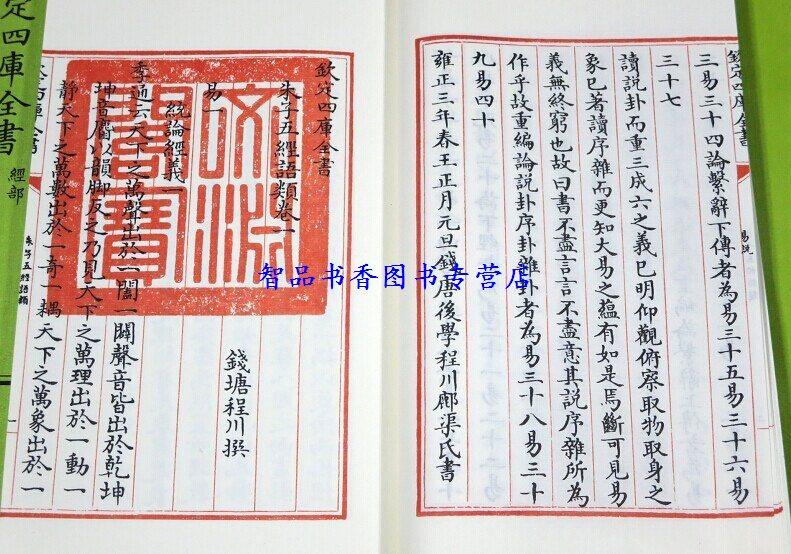 欽定四庫全書
三易三十四論繫辭下傳者為易三十五易三十六易
三十七
讀說卦而重三成六之義巳明仰觀俯察取物取身之
象巳著讀序雜而更知大易之蘊有如是焉斷可見易
義無終窮也故曰書不盡言言不盡意其說序雜所為
作乎故重編論說卦序卦雜卦者為易三十八易三十
九易四十
雍正三年春王正月元旦錢唐後學程川郎渠氏書
欽定四庫全書
朱子五經語類卷一
錢塘程川撰
易一
統論經義一
季通云天下之萬聲出於一闔一闢聲音皆出於乾坤
坤音腐以韻脚反之乃見天下之萬理出於一動一
靜天下之萬數出於一奇一耦天下之萬象出於一
朱子五經語類
定四庫全書
經部
文淵閣寶
智品书香图书专营店